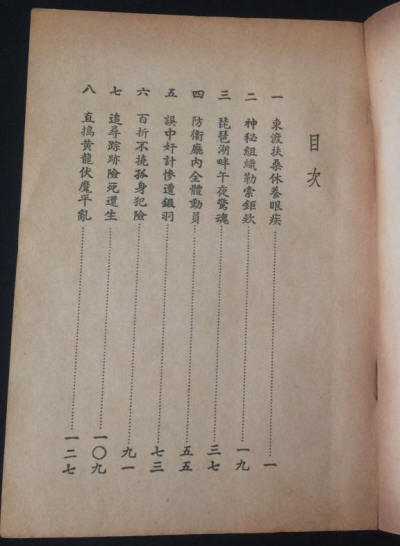 目次
一 東渡扶桑休養眼疾……一
二 神秘組織勒索鉅欵……一九
三 琵琶湖畔午夜驚魂……三七
四 防衛廳內全體動員……五五
五 誤中奸計慘遭鎩羽……七三
六 百折不撓孤身犯險……九一
七 追尋踪跡險死還生……一〇九
八 直搗黃龍伏魔平亂……一二七